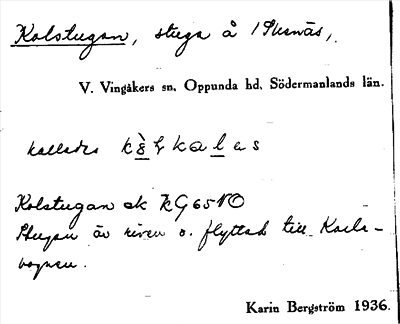 Kolstugan, stuga å
V. Vingåkers sn. Oppunda hd. Södermanlands län.
kallades
Kolstugan ek KG65NO
Stugan är riven o. flyttad till Karls-
vognen.
Karin Bergström 1936.